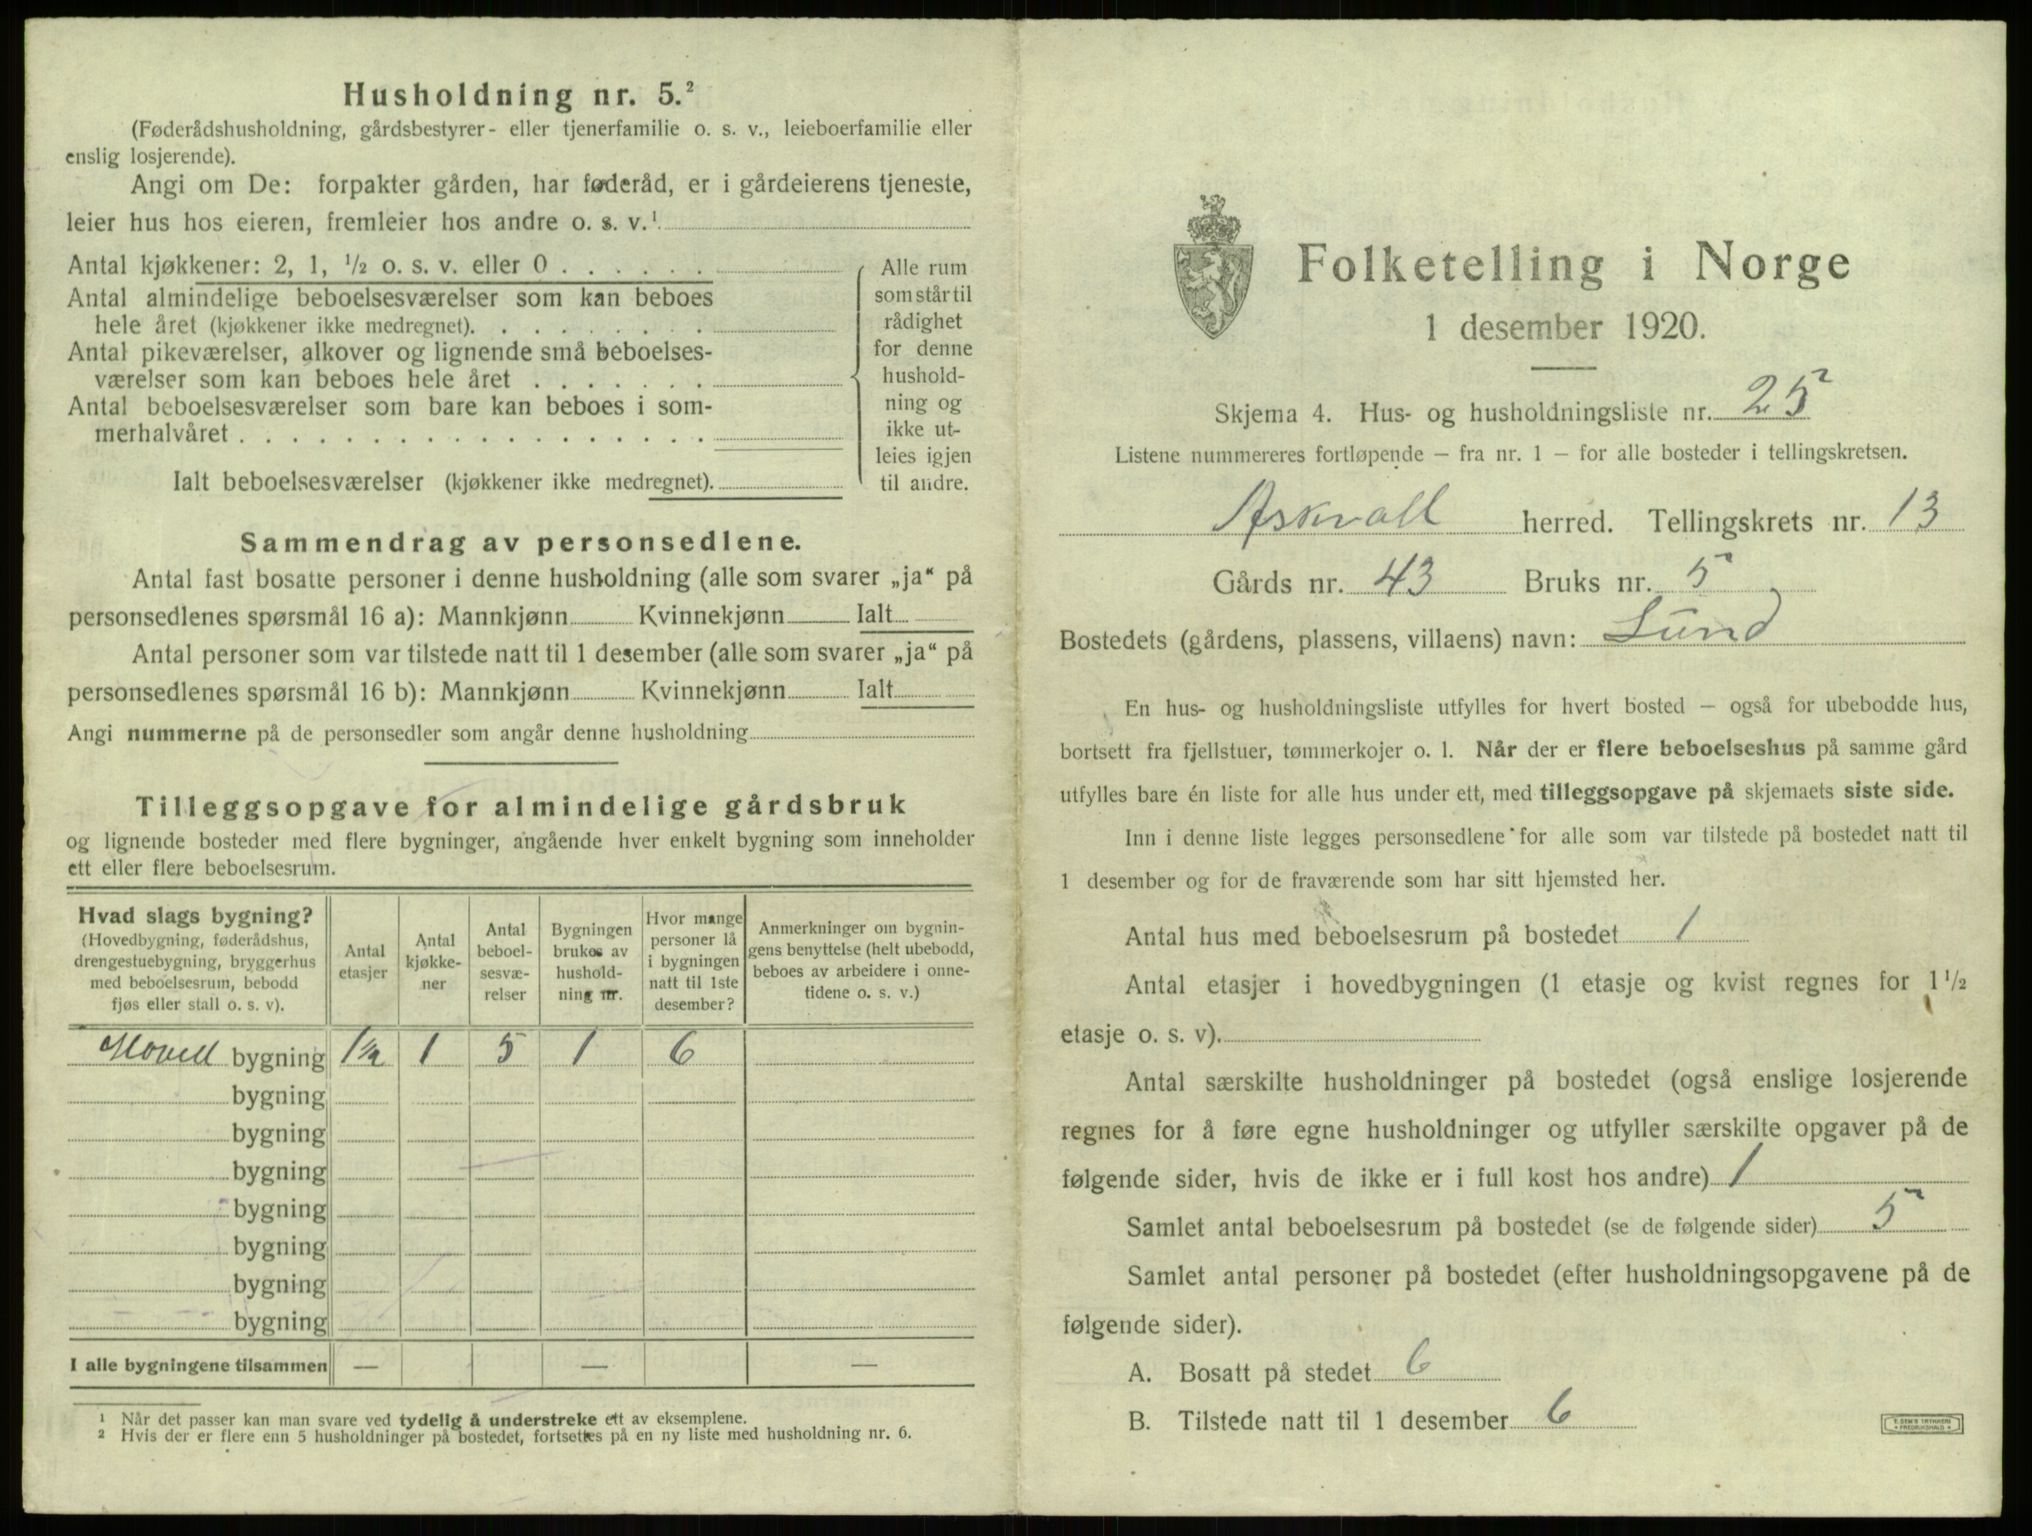 Husholdning nr. 5.²
(Føderådshusholdning, gårdsbestyrer- eller tjenerfamilie o. s. v., leieboerfamilie eller
enslig losjerende).
Angi om De: forpakter gården, har føderåd, er i gårdeierens tjeneste,
leier hus hos eieren, fremleier hos andre o. s. v.¹
Antal kjøkkener: 2, 1, ½ o. s. v. eller 0
Antal almindelige beboelsesværelser som kan beboes
hele året (kjøkkener ikke medregnet).
Antal pikeværelser, alkover og lignende små beboelses-
værelser som kan beboes hele året
Antal beboelsesværelser som bare kan beboes i som-
merhalvåret
Ialt beboelsesværelser (kjøkkener ikke medregnet).
Alle rum
som står til
rådighet
for denne
hushold-
ning og
ikke ut-
leies igjen
til andre.
Sammendrag av personsedlene.
Antal fast bosatte personer i denne husholdning (alle som svarer „ja“ på
personsedlenes spørsmål 16 a): Mannkjønn Kvinnekjønn Ialt
Antal personer som var tilstede natt til 1 desember (alle som svarer „ja“ på
personsedlenes spørsmål 16 b): Mannkjønn Kvinnekjønn Ialt
Angi nummerne på de personsedler som angår denne husholdning
Tilleggsopgave for almindelige gårdsbruk
og lignende bosteder med flere bygninger, angående hver enkelt bygning som inneholder
ett eller flere beboelsesrum.
Hvad slags bygning?
(Hovedbygning, føderådshus,
drengestuebygning, bryggerhus
med beboelsesrum, bebodd
fjøs eller stall o. s. v).
Antal
etasjer
Antal
kjøkke-
ner
Antal
beboel-
sesvæ-
relser
Bygningen
brukes av
hushold-
ning nr.
Hvor mange
personer lå
i bygningen
natt til 1ste
desember?
Anmerkninger om bygnin-
gens benyttelse (helt ubebodd,
beboes av arbeidere i onne-
tidene o. s. v.)
Hoved bygning 1½ 1 5 1 6
bygning
bygning
bygning
bygning
bygning
bygning
bygning
I alle bygningene tilsammen — — —
¹ Når det passer kan man svare ved tydelig å understreke ett av eksemplene.
² Hvis der er flere enn 5 husholdninger på bostedet, fortsettes på en ny liste med husholdning nr. 6.
Folketelling i Norge
1 desember 1920.
Skjema 4. Hus- og husholdningsliste nr. 25
Listene nummereres fortløpende — fra nr. 1 — for alle bosteder i tellingskretsen.
Askvoll herred. Tellingskrets nr. 13
Gårds nr. 43 Bruks nr. 5
Bostedets (gårdens, plassens, villaens) navn: Lund
En hus- og husholdningsliste utfylles for hvert bosted — også for ubebodde hus,
bortsett fra fjellstuer, tømmerkojer o. l. Når der er flere beboelseshus på samme gård
utfylles bare én liste for alle hus under ett, med tilleggsopgave på skjemaets siste side.
Inn i denne liste legges personsedlene for alle som var tilstede på bostedet natt til
1 desember og for de fraværende som har sitt hjemsted her.
Antal hus med beboelsesrum på bostedet 1
Antal etasjer i hovedbygningen (1 etasje og kvist regnes for 1½
etasje o. s. v).
Antal særskilte husholdninger på bostedet (også enslige losjerende
regnes for å føre egne husholdninger og utfyller særskilte opgaver på de
følgende sider, hvis de ikke er i full kost hos andre) 1
Samlet antal beboelsesrum på bostedet (se de følgende sider) 5
Samlet antal personer på bostedet (efter husholdningsopgavene på de
følgende sider).
A. Bosatt på stedet 6
B. Tilstede natt til 1 desember 6